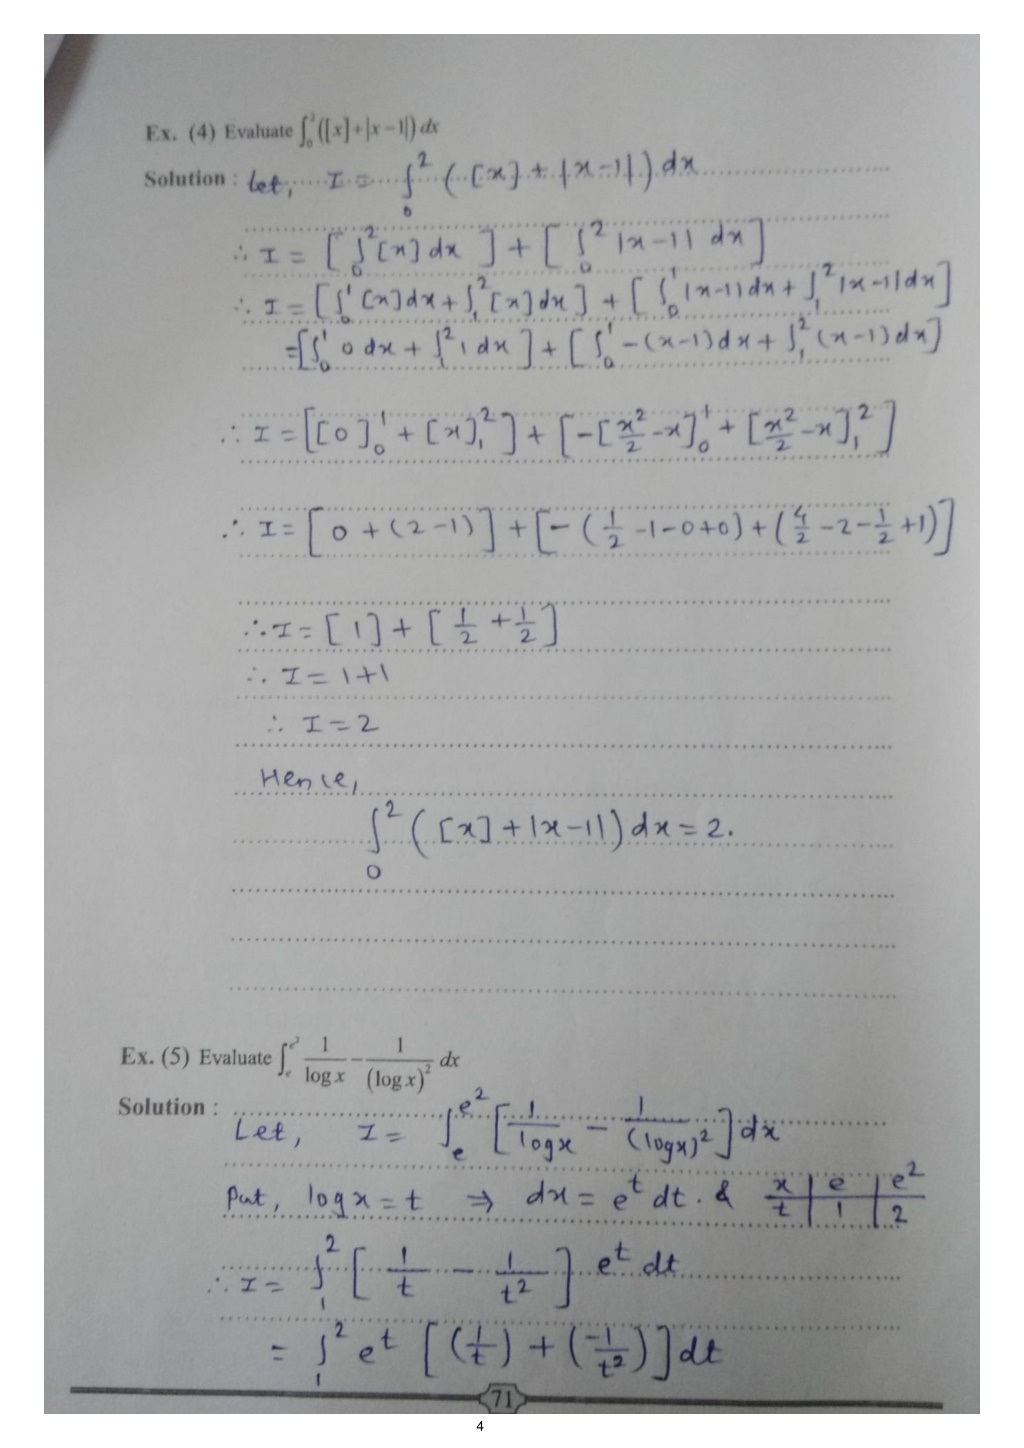 Ex. (4) Evaluate ∫₀² ([x]+|x−1|) dx
Solution : Let, I = ∫₀² ([x] + |x−1|) dx
∴ I = [∫₀² [x] dx] + [∫₀² |x−1| dx]
∴ I = [∫₀¹ [x] dx + ∫₁² [x] dx] + [∫₀¹ |x−1| dx + ∫₁² |x−1| dx]
= [∫₀¹ 0 dx + ∫₁² 1 dx] + [∫₀¹ −(x−1) dx + ∫₁² (x−1) dx]
∴ I = [[0]₀¹ + [x]₁²] + [−[x²/2 − x]₀¹ + [x²/2 − x]₁²]
∴ I = [0 + (2−1)] + [−(1/2 −1−0+0) + (4/2 −2− 1/2 +1)]
∴ I = [1] + [1/2 + 1/2]
∴ I = 1+1
∴ I = 2
Hence,
∫₀² ([x] + |x−1|) dx = 2.
Ex. (5) Evaluate ∫ₑ^(e²) 1/log x − 1/(log x)² dx
Solution :
Let, I = ∫ₑ^(e²) [1/logx − 1/(logx)²] dx
Put, log x = t ⇒ dx = eᵗ dt . & x | e | e²
t | 1 | 2
∴ I = ∫₁² [1/t − 1/t²] eᵗ dt
= ∫₁² eᵗ [(1/t) + (−1/t²)] dt
71
4